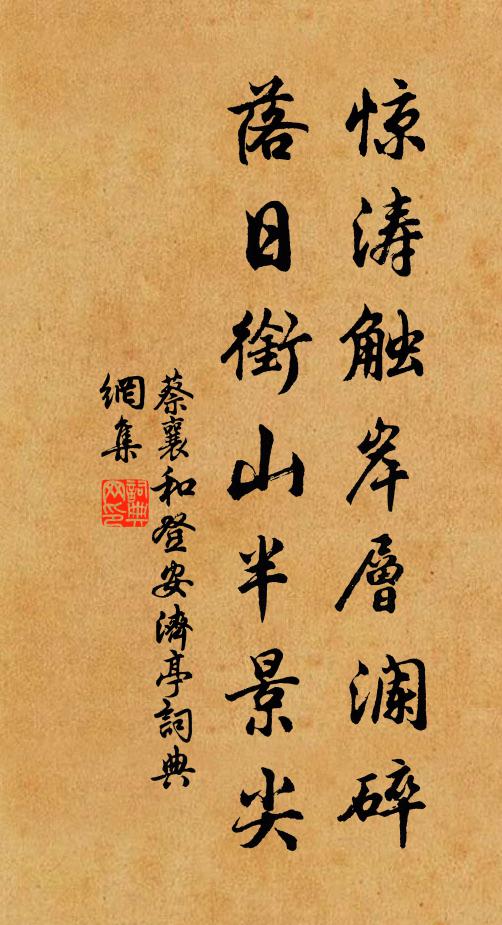 惊涛触岸層澜碎
落日銜山半景尖
蔡襄和登安濟亭詞典
網集
詞典
网印